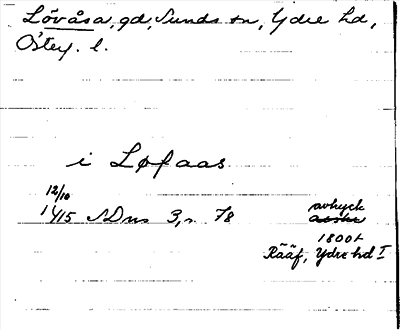 Lövåsa, gd, Sunds sn, Ydre hd,
Östeg. l.
i Løfaas
12/10
1415 SDns 3, s. 78
avtryck
1800t.
Rääf, Ydre hd I